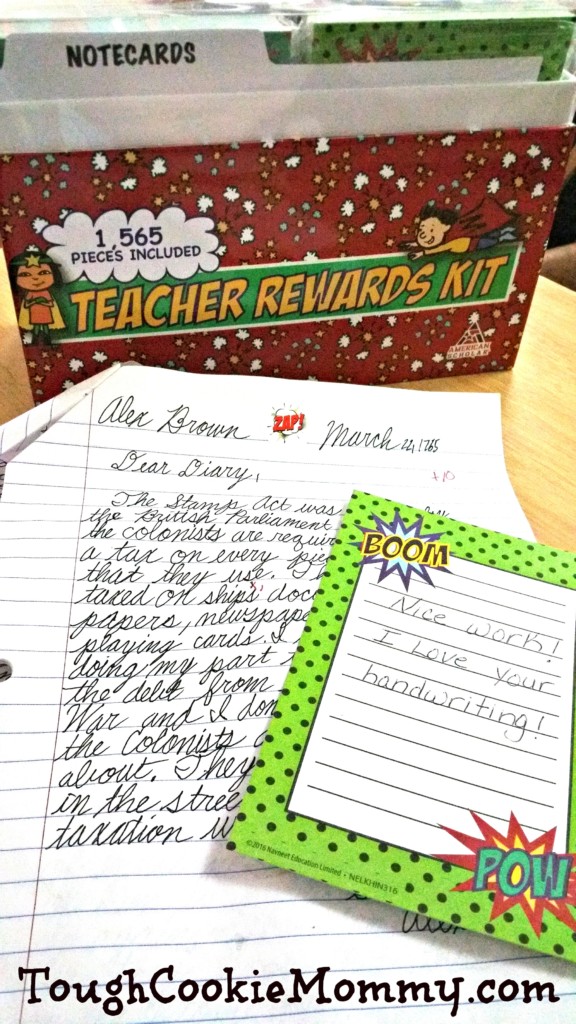 NOTECARDS
1,565
PIECES INCLUDED
TEACHER REWARDS KIT
AMERICAN
SCHOLAR
Alex Brown
ZAP!
March 22, 1765
Dear Diary,
+10
The Stamp Act was
the British Parliament
the colonists are requir
a tax on every piece
that they use. I
taxed on ships' docu
papers, newspape
playing cards. I
doing my part
the debt from
War and I don
the colonists
about. They
in the stree
taxation w
BOOM
Nice work!
I love your
handwriting!
POW
©2016 Navneet Education Limited • NELKHIN316
ToughCookieMommy.com